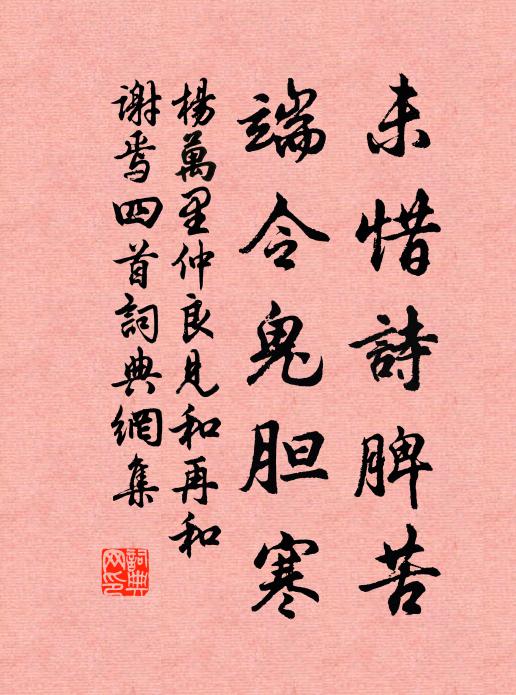 未惜詩脾苦
端令鬼胆寒
楊萬里仲良見和再和
謝焉四首詞典網集
詞典網印